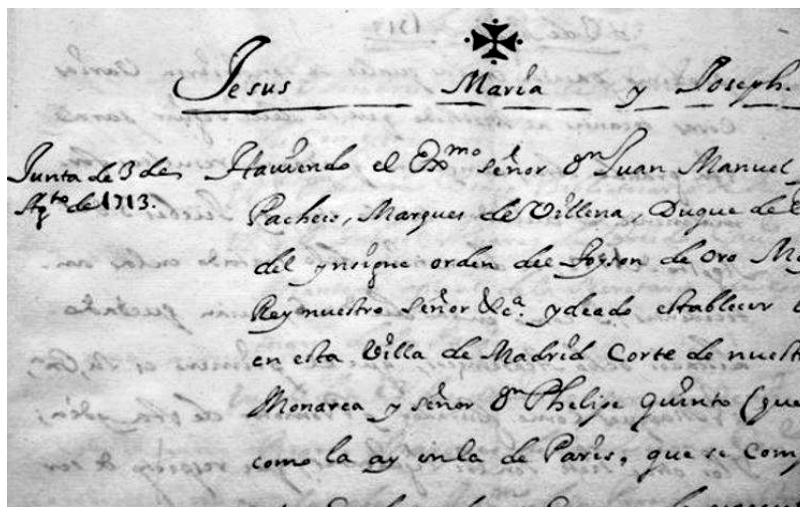 Jesus Maria y Joseph.
Junta de 3 de
Agto de 1713.
Haviendo el Exmo señor Dn Juan Manuel
Pacheco, Marques de Villena, Duque de
del ynsigne orden del Toyson de oro
Rey nuestro señor &ca. ydeado establecer
en esta Villa de Madrid Corte de nuest
Monarca y señor Dn Phelipe quinto (que
como la ay en la de Paris, que se com